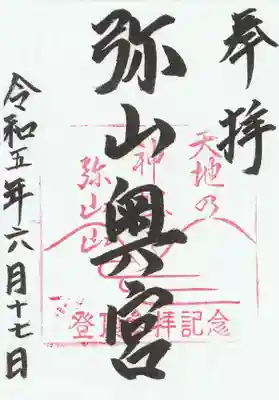 奉拝
天地の
神
弥山奥宮
弥山山
登頂参拝記念
令和五年六月十七日